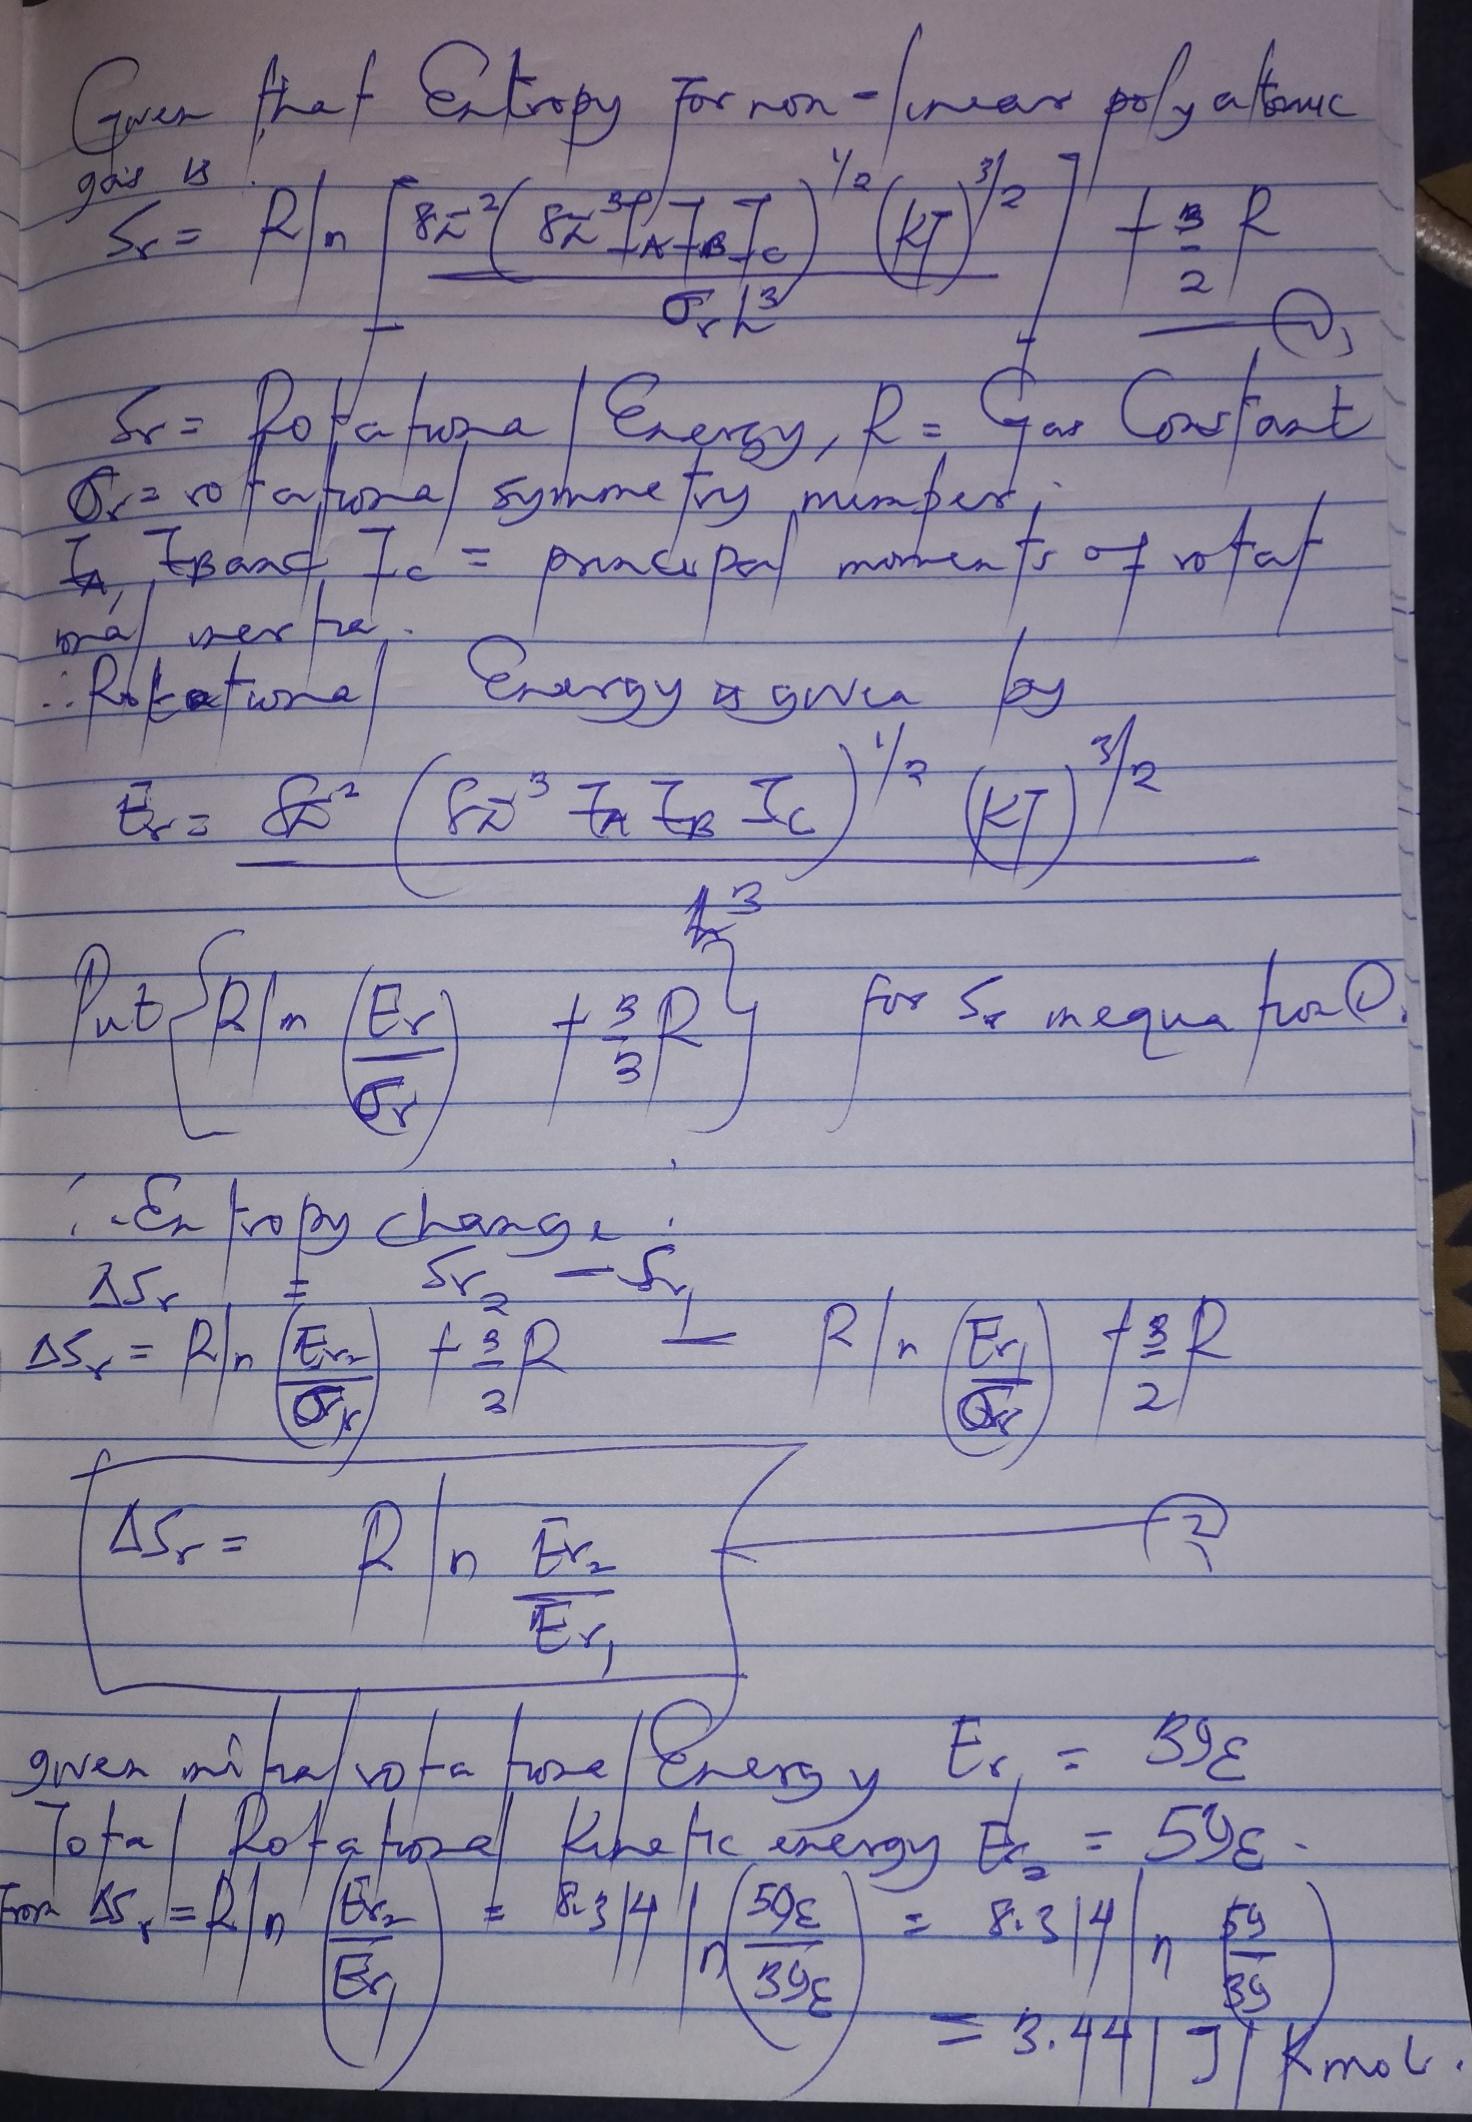 Given that Entropy for non-linear polyatomic
gas is
Sr = R ln [8π²(8π³IA IB IC)^1/2 (KT)^3/2 / σr h³] + 3/2 R —①
Sr = Rotational Energy, R = Gas Constant
σr = rotational symmetry number,
IA, IB and IC = principal moments of rotat
ional inertia.
∴ Rotational Energy is given by
Er = 8π² (8π³ IA IB IC)^1/2 (KT)^3/2 / h³
Put {R ln (Er/σr) + 3/3 R} for Sr in equation ①.
∴ Entropy change:
ΔSr = Sr2 - Sr1
ΔSr = R ln (Er2/σr) + 3/2 R - R ln (Er1/σr) + 3/2 R
ΔSr = R ln Er2/Er1 —②
given initial rotational Energy Er1 = 39ε
Total Rotational Kinetic energy Er2 = 59ε.
From ΔSr = R ln (Er2/Er1) = 8.314 ln (59ε/39ε) = 8.314 ln (59/39)
= 3.441 J/Kmol.